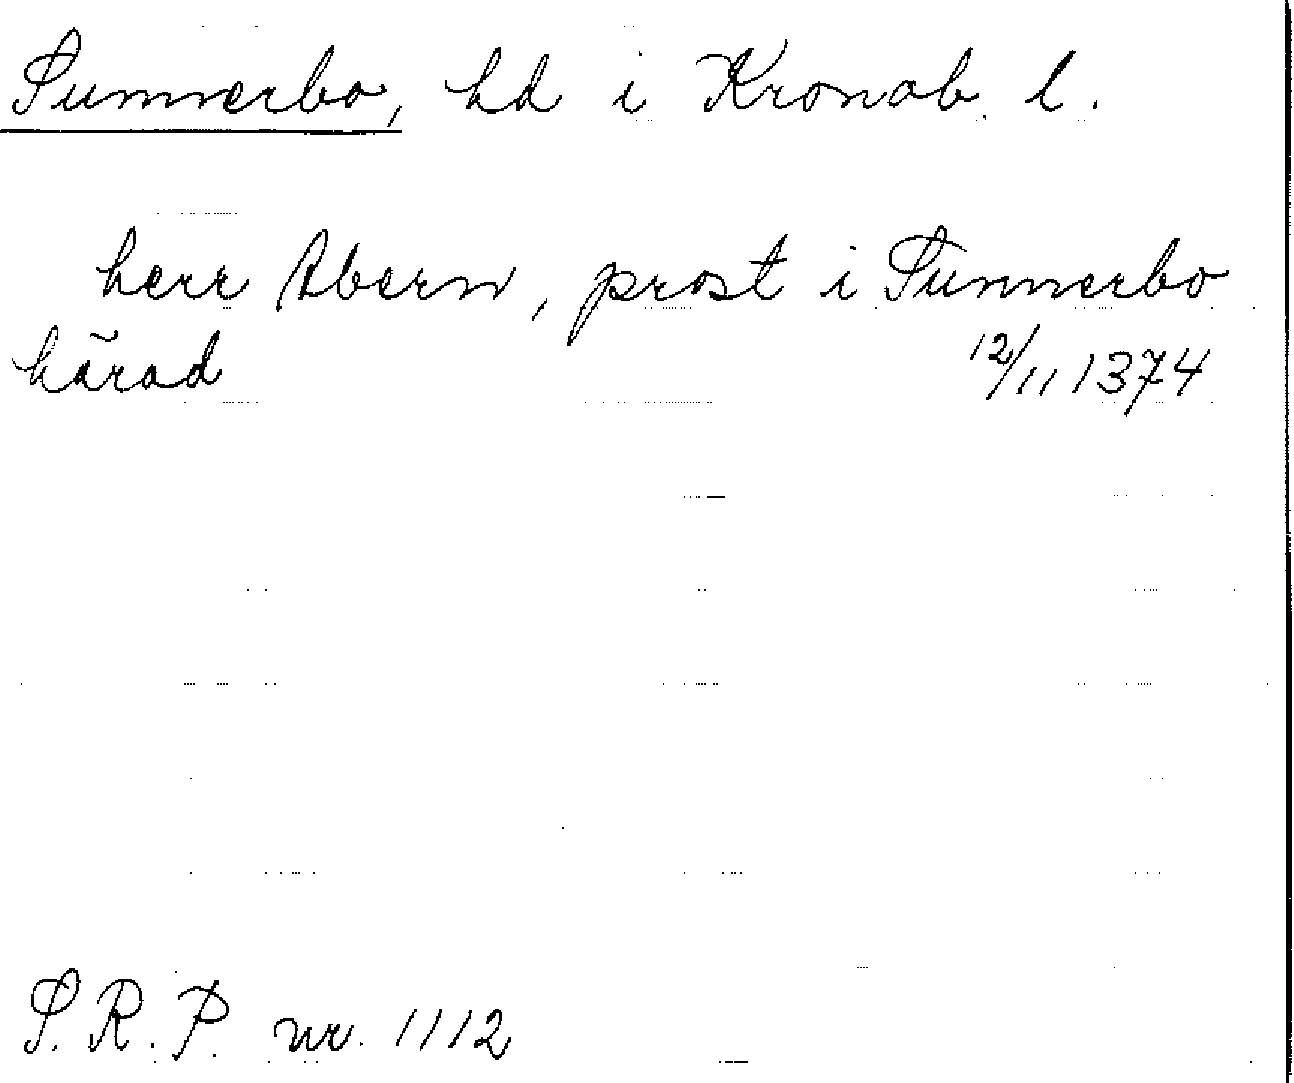 Sunnerbo, hd i Kronob. l.
herr Abern, prost i Sunnerbo
härad 12/11 1374
S.R.P. nr. 1112